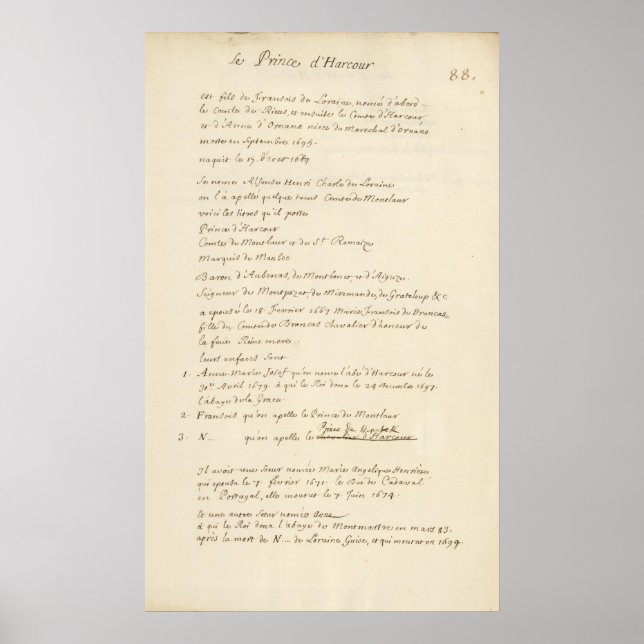 Le Prince d'Harcour
88.
est fils de Fransois de Loraine, nomé d'abord
le Comte de Rieux, et ensuite le Comte d'Harcour
et d'Anne d'Ornano niece du Marechal d'Ornano
morte en Septembre 1695.
naquit le 15. d'aoust
Se nome Alfonse Henri Charle de Loraine
on l'a apellé quelque tems Comte de Montlaur
voici les titres qu'il porte
Prince d'Harcour
Comte de Montlaur et de St. Romaize
Marquis de Maubec
Baron d'Aubenas, de Montbonet, et d'Aiguze.
Seigneur de Montpezat, de Miremande, de Grateloup &c
a epousé le 18. Fevrier 1667. Marie Fransoise de Brancas
fille du Comte de Brancas chevalier d'honeur de
la feue Reine mere
leurs enfans sont
1. Anne Marie Josef qu'on nome l'abé d'Harcour né le
30e. Avril 1679. à qui le Roi dona le 24 decembre 1697.
l'abaye de la Grace.
2. Fransois qu'on apelle le Prince de Montlaur
Prince de Maubec
3. N... qu'on apelle le chevalier d'Harcour
Il avoit une Sœur nomée Marie Angelique Henriete
qui epousa le 7. fevrier 1671. le Duc de Cadaval
en Portugal, elle mourut le 7. Juin 1674.
Et une autre Sœur nomée
à qui le Roi dona l'abaye de Montmartre en mars 83.
après la mort de N... de Loraine Guise, et qui mourut en 1699.